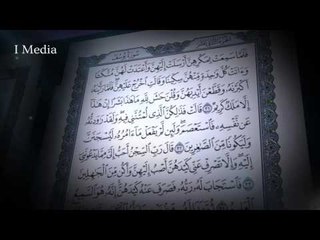 I Media
فَلَمَّا سَمِعَتْ بِمَكْرِهِنَّ أَرْسَلَتْ إِلَيْهِنَّ وَأَعْتَدَتْ لَهُنَّ مُتَّكَـًٔا
وَءَاتَتْ كُلَّ وَٰحِدَةٍ مِّنْهُنَّ سِكِّينًا وَقَالَتِ ٱخْرُجْ عَلَيْهِنَّ فَلَمَّا رَأَيْنَهُۥٓ
أَكْبَرْنَهُۥ وَقَطَّعْنَ أَيْدِيَهُنَّ وَقُلْنَ حَٰشَ لِلَّهِ مَا هَٰذَا بَشَرًا إِنْ هَٰذَآ
إِلَّا مَلَكٌ كَرِيمٌ ٣١ قَالَتْ فَذَٰلِكُنَّ ٱلَّذِى لُمْتُنَّنِى فِيهِ وَلَقَدْ رَٰوَدتُّهُۥ
عَن نَّفْسِهِۦ فَٱسْتَعْصَمَ وَلَئِن لَّمْ يَفْعَلْ مَآ ءَامُرُهُۥ لَيُسْجَنَنَّ
وَلَيَكُونًا مِّنَ ٱلصَّٰغِرِينَ ٣٢ قَالَ رَبِّ ٱلسِّجْنُ أَحَبُّ إِلَىَّ مِمَّا يَدْعُونَنِىٓ
إِلَيْهِ وَإِلَّا تَصْرِفْ عَنِّى كَيْدَهُنَّ أَصْبُ إِلَيْهِنَّ وَأَكُن مِّنَ ٱلْجَٰهِلِينَ ٣٣
فَٱسْتَجَابَ لَهُۥ رَبُّهُۥ فَصَرَفَ عَنْهُ كَيْدَهُنَّ إِنَّهُۥ هُوَ ٱلسَّمِيعُ